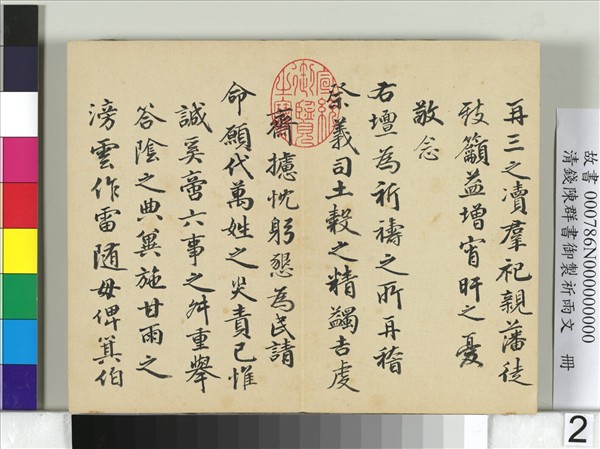 再三之瀆羣祀親藩徒
致籲益增宵旰之憂
敬念
右壇為祈禱之所再稽
祭義司土穀之精蠲吉虔
齋攄忱躬懇為民請
命願代萬姓之災責己惟
誠奚啻六事之舛重舉
答陰之典冀施甘雨之
滂雲作雷隨毋俾箕伯
宣統御覽之寶
故書 000786N000000000
清錢陳群書御製祈雨文 冊
2